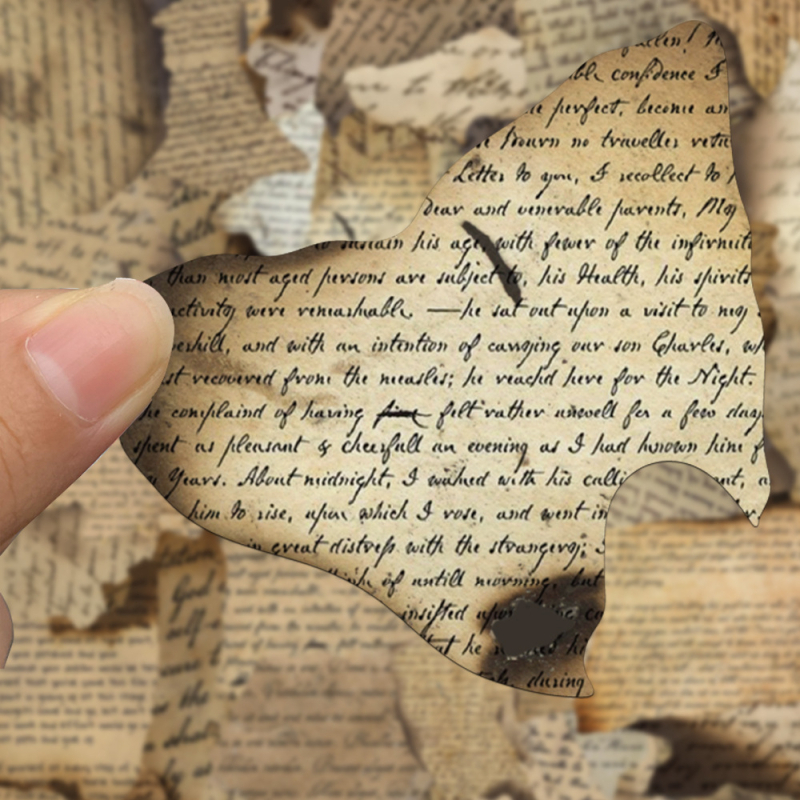 confidence I
perfect, become an
Bourn no traveller retu
Letter to you, I recollect to
Dear and venerable parents, My
to sustain his age, with fewer of the infirmiti
than most aged persons are subject to, his Health, his spirits
activity were remarkable. —he sat out upon a visit to my
erhill, and with an intention of carrying our son Charles, wh
st recovered from the measles; he reach'd here for the Night.
he complaind of having felt rather unwell for a few day
spent as pleasant & cheerfull an evening as I had known him f
Years. About midnight, I waked with his calli nt, a
him to rise, upon which I rose, and went in
in great distress with the strangery; I
think of untill morning, but
insisted upon
at he
during